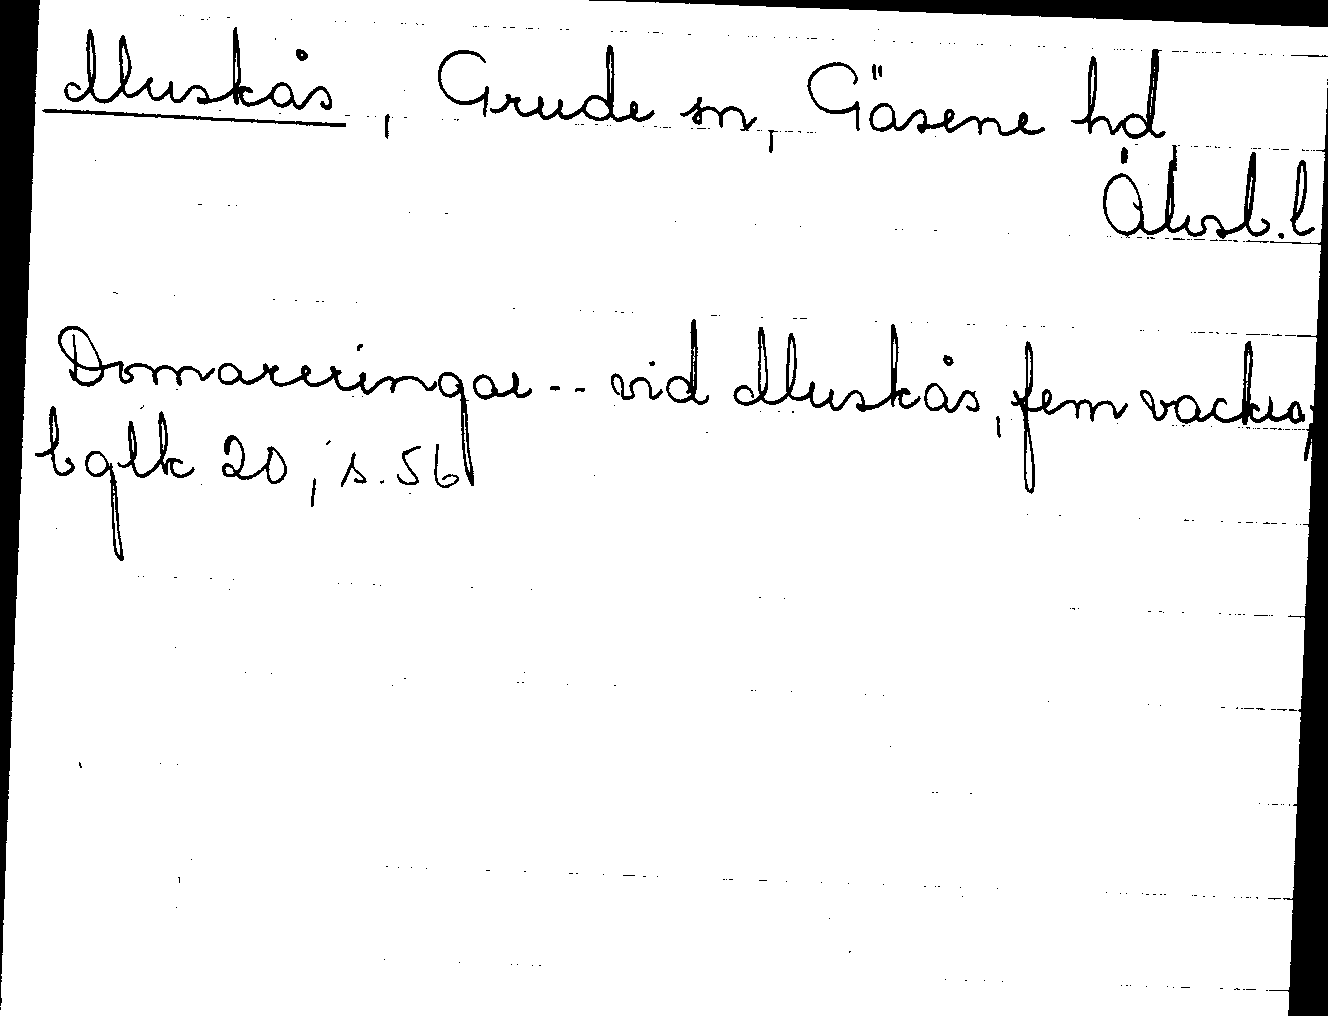 Muskås, Grude sn, Gäsene hd
Älvsb. l
Domareringar -- vid Muskås, fem vackra,
bglk 20, s. 56